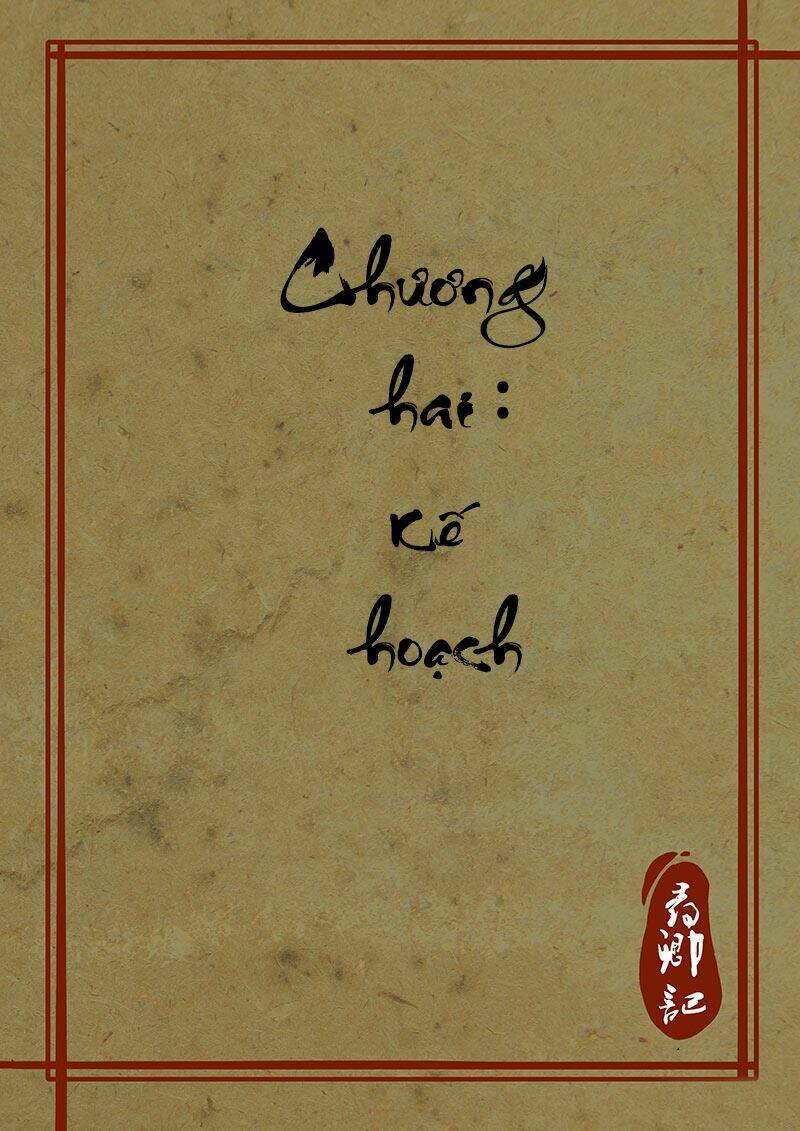 Chương
hai :
Kế
hoạch
尋
卿
記